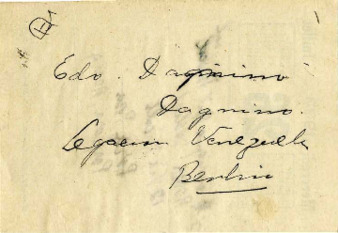 Edo. Dagnino
Dagnino.
Legacion Venezuela
Berlin